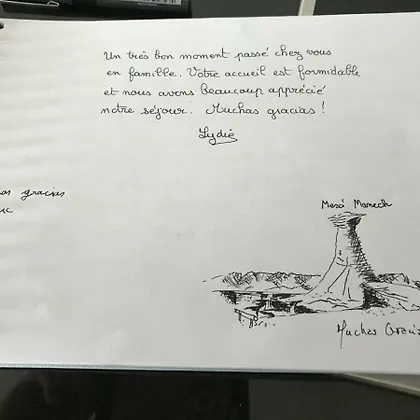 Un très bon moment passé chez vous
en famille. Votre accueil est formidable
et nous avons beaucoup apprécié
notre séjour. Muchas gracias !
Lydie
gracias
Muchas